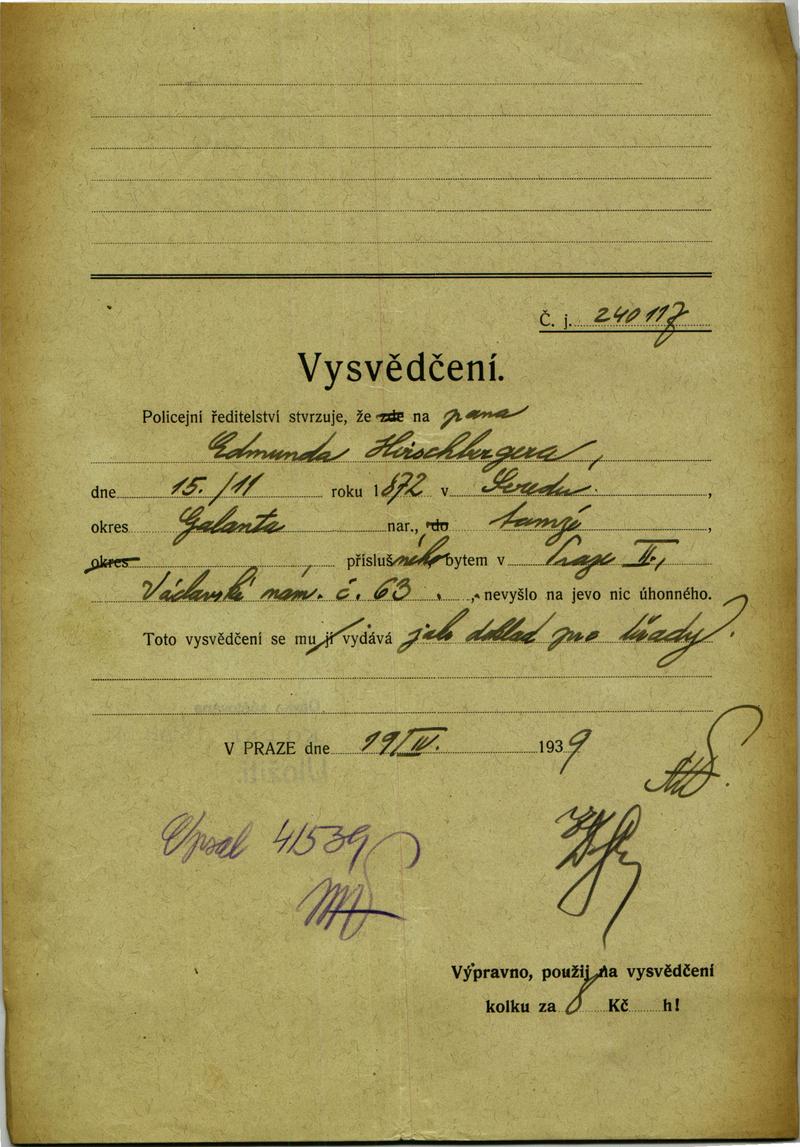 Č. j. 240117
Vysvědčení.
Policejní ředitelství stvrzuje, že zde na pana
Edmunda Hirschbergera,
dne 15./11 roku 1872 v Seredu,
okres Galanta nar., do tamže,
okres, příslušného bytem v Praze II.,
Václavské nám. č. 63, nevyšlo na jevo nic úhonného.
Toto vysvědčení se mu ji vydává jako doklad pro úřady.
V PRAZE dne 19/IV. 1939
Opsal 4/5 39
Výpravno, použij na vysvědčení
kolku za 8 Kč h!